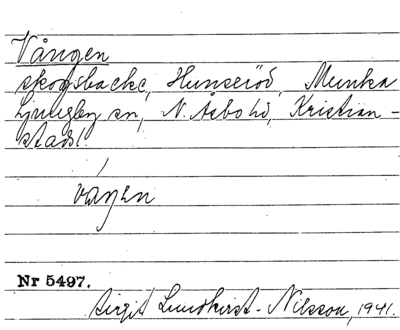 Vången
skogsbacke, Hunseröd, Munka
Ljungby sn, N. Åsbo hd, Kristian-
stads l.
vaŋen
Nr 5497.
Birgit Lundkvist-Nilsson, 1941.